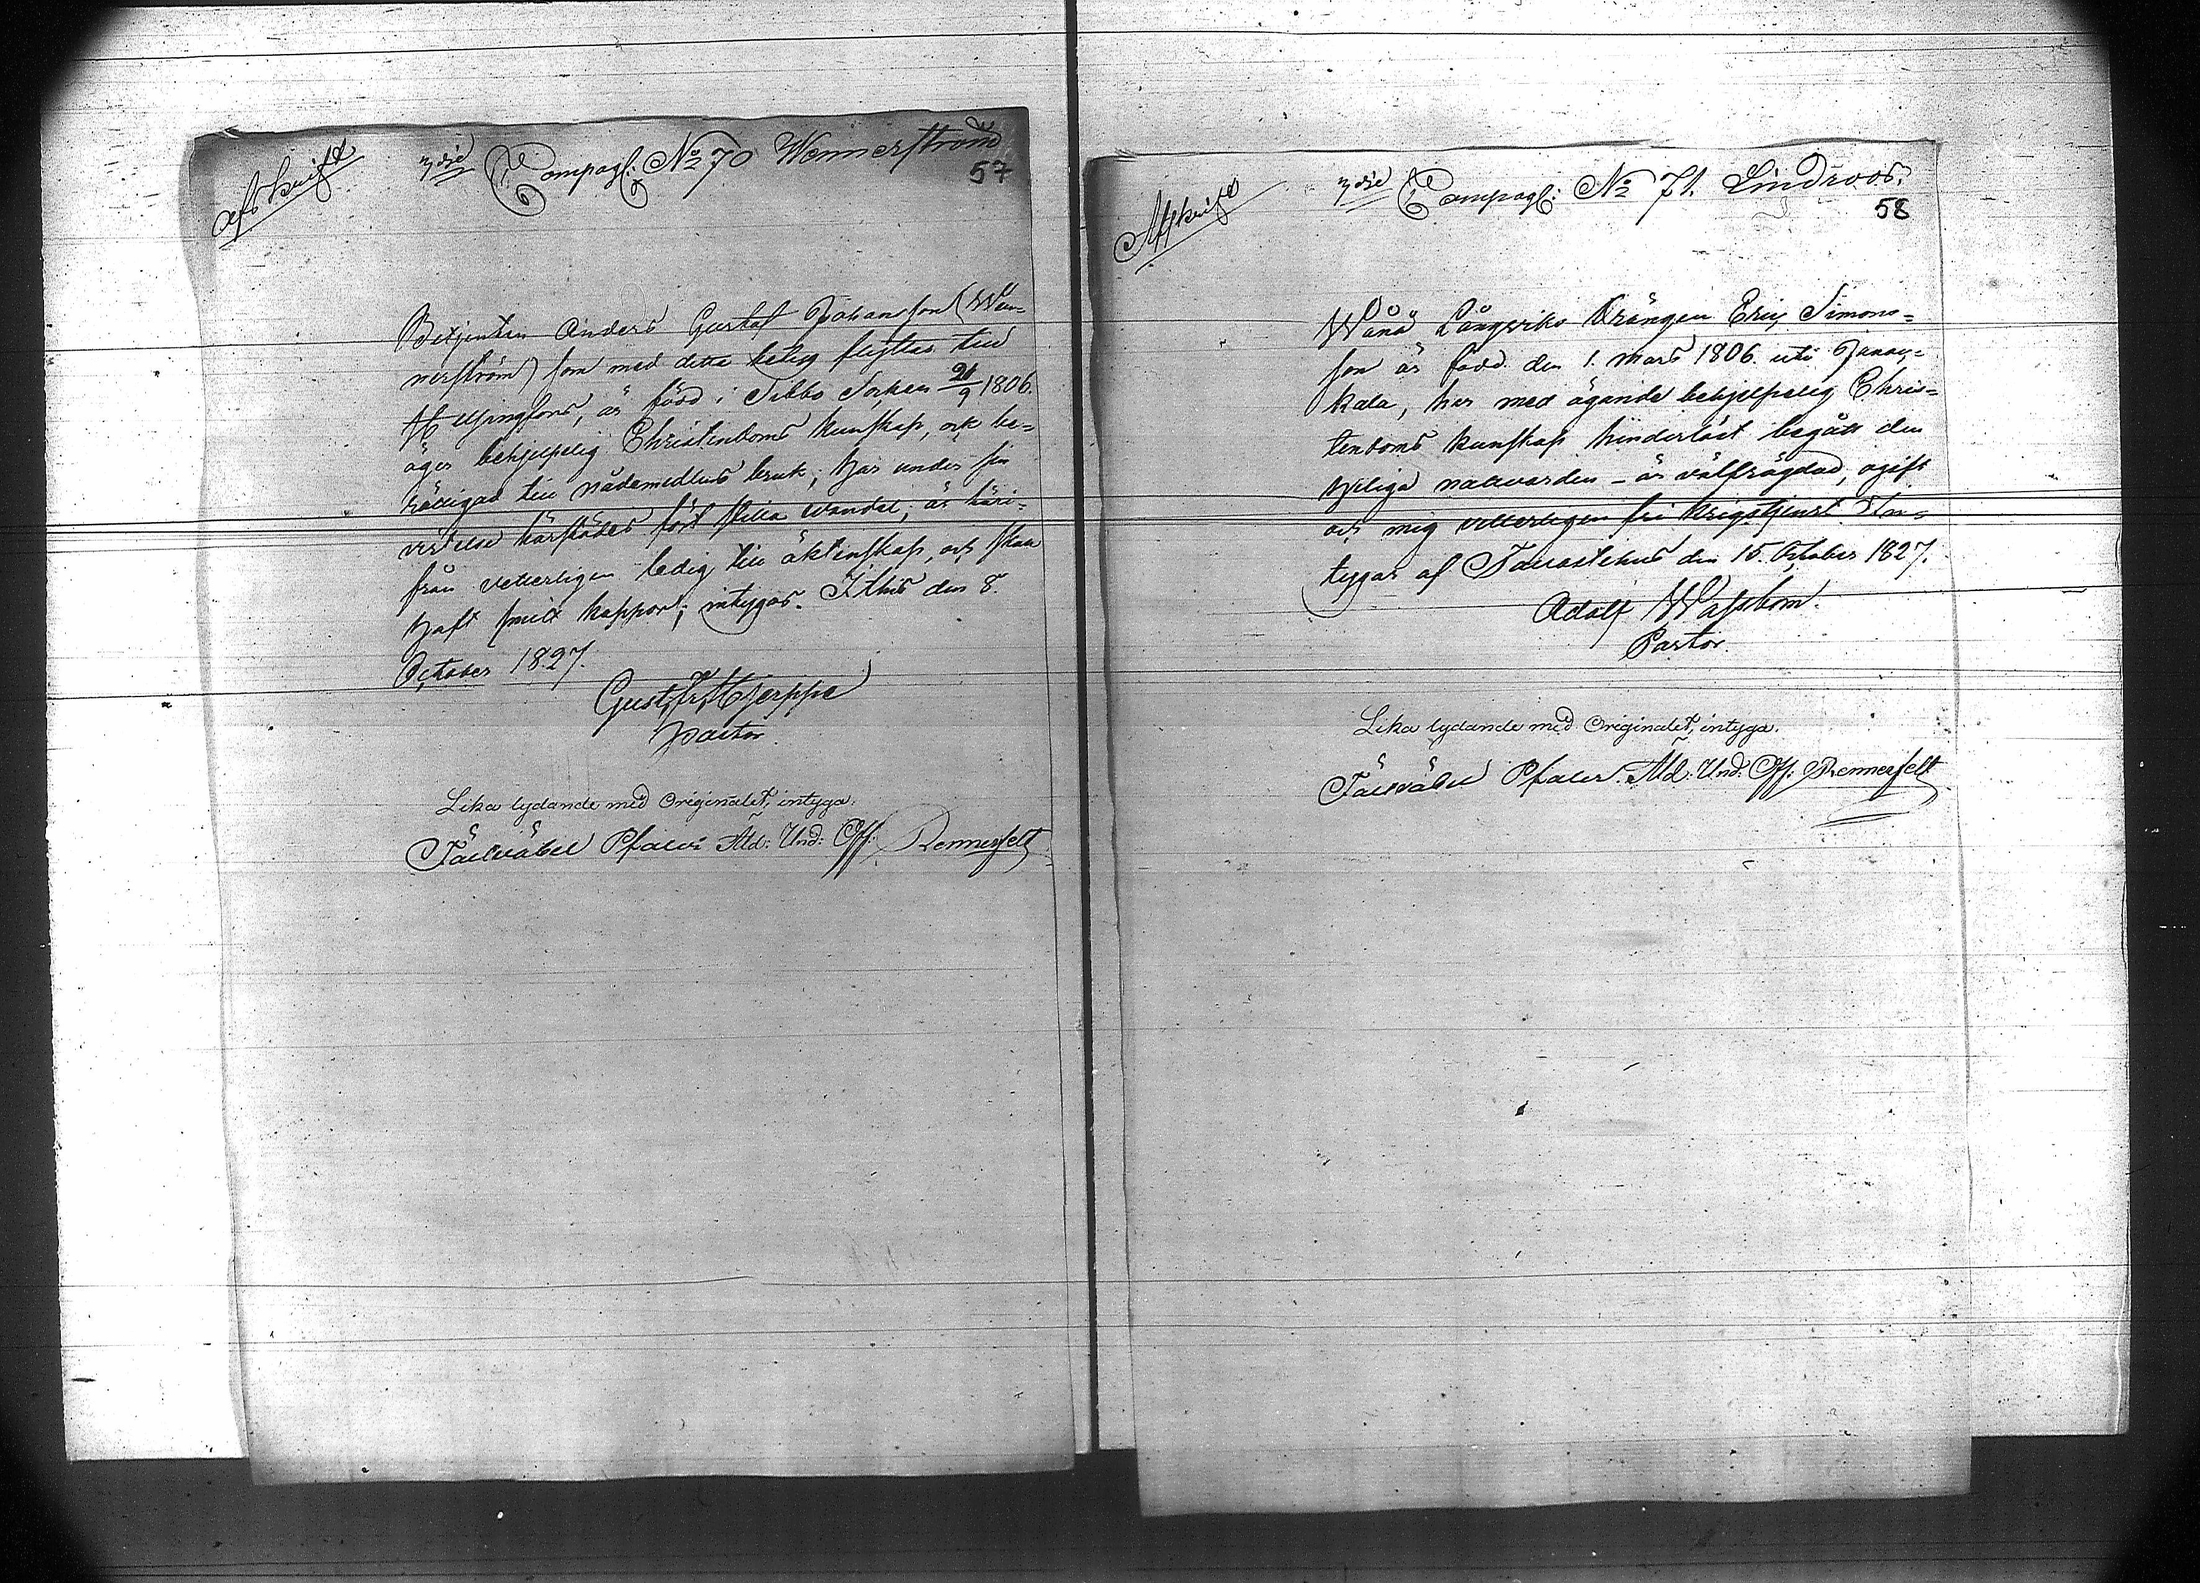 Afskrift
3dje Compagi: No 70 Wennerström
57
Betjenten Anders Gustaf Johansson (Wen-
nerström) som med detta betyg flyttar till
Helsingfors, är född i Sibbo Socken 21/9 1806.
äger behjelpelig Christendoms kunskap, ock be-
rättigad till nådemedlens bruk; har under sin
vistelse härstädes fört stilla vandel; är häri-
från vetterligen ledig till äktenskap, och skall
haft smitt koppor; intygas. Sthus den 8.
October 1827.
Gust. Fr. Hjerppe
Pastor
Lika lydande med Originalet, intyga:
Fältväbel Pfaler Åld: Und: Off: Rennerfelt
Afskrift
3dje Compagi: No 71. Lindroos.
58
Wånå Långwiks Drängen Eric Simons-
son är född den 1. Mars 1806 uti Janac-
kala, har med ägande behjelpelig Chris-
tendoms kunskap hinderlöst begått den
heliga nattvarden - är välfrägdad, ogift
och mig vetterligen fri krigstjenst. Som
tygas af Tavastehus den 15. October 1827.
Adolf Wassbom.
Pastor.
Lika lydande med Originalet, intyga.
Fältväbel Pfaler. Åld: Und: Off: Rennerfelt